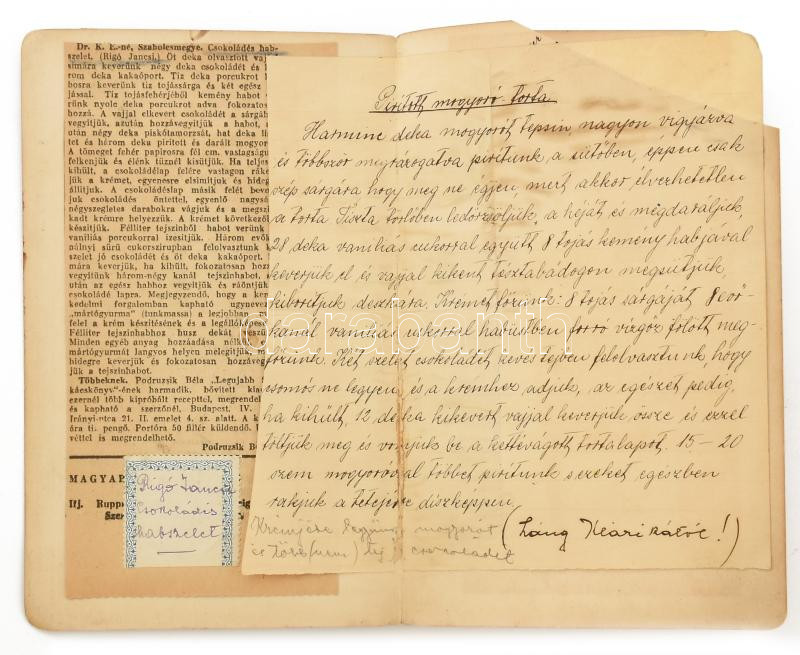 Dr. K. E.-né, Szabolcsmegye. Csokoládés hab-
szelet. (Rigó Jancsi.) Öt deka olvasztott vaj
simára keverünk négy deka csokoládét és
rom deka kakaóport. Tíz deka porcukrot
bosra keverünk tíz tojássárga és két egész
jással. Tíz tojásfehérjéből kemény habot
rünk nyolc deka porcukrot adva fokozatos
hozzá. A vajjal elkevert csokoládét a sárgáh
vegyítjük, azután hozzávegyítjük a habot,
után négy deka piskótamorzsát, hat deka li
tet és három deka pirított és darált mogyor
A tömeget fehér papírosra fél cm. vastagságu
felkenjük és élénk tűznél kisütjük. Ha teljes
kihűlt, a csokoládélap felére vastagon ráke
jük a krémet, egyenesre elsimítjuk és hideg
állítjuk. A csokoládéslap másik felét bevo
juk csokoládés öntettel, egyenlő nagysá
négyszegletes darabokra vágjuk és a megszi
kadt krémre helyezzük. A krémet következőb
készítjük. Félliter tejszínből habot verünk
vaníliás porcukorral ízesítjük. Három evők
nálnyi sűrű cukorszirupban felolvasztunk
szelet jó csokoládét és öt deka kakaóport.
mára keverjük, ha kihűlt, fokozatosan hozz
vegyítünk három-négy kanál tejszínhabot,
után az egész habhoz vegyítjük és ráöntjük
csokoládé lapra. Megjegyzendő, hogy a ke
kedelmi forgalomban kapható úgynevez
„mártógyurma" (tunkmassa) a legjobban
felel a krém készítésének és a legállóbb
Félliter tejszínhabhoz húsz dekát veszü
Minden egyéb anyag hozzáadása nélkül
mártógyurmát langyos helyen melegítjük,
hidegre keverjük és fokozatosan hozzávegy
jük a tejszínhabot.
Többeknek. Podruzsik Béla „Legujabb
kácskönyv"-ének harmadik, bővített kiad
ezernél több kipróbált recepttel, megrendel
és kapható a szerzőnél, Budapest, IV.
Irányi-utca 21. II. emelet 4. sz. alatt. A k
ára tí. pengő. Portóra 50 fillér küldendő.
vétellel is megrendelhető.
Podruzsik B
MAGYAR
Ifj. Rupp
Szer
Rigó Jancsi
Csokoládés
habszelet
Pirított mogyoró-torta
Harminc deka mogyorót tepsin, nagyon vigyázva
és többször megrázogatva pirítunk a sütőben, éppen csak
szép sárgára hogy meg ne égjen, mert akkor élvezhetetlen
a torta. Tiszta törlőben ledörzsöljük, a héját és megdaráljuk,
28 deka vaníliás cukorral együtt 8 tojás kemény habjával
keverjük el és vajjal kikent tésztabádogon megsütjük,
kiborítjuk deszkára. Krémet főzünk: 8 tojás sárgáját 8 evő-
kanál vaníliás cukorral habüstben forró vízgőz fölött meg-
főzünk. Két szelet csokoládét kevés tejben felolvasztunk, hogy
csomós ne legyen, és a krémhez adjuk, az egészet pedig,
ha kihűlt, 12 deka kikevert vajjal keverjük össze és ezzel
töltjük meg és vonjuk be a kettévágott tortalapot. 15-20
szem mogyoróval többet pirítunk s ezeket egészben
rakjuk a tetejére díszképpen.
(Láng Méari kátóé!)
mogyorót
csokoládét
darabanth